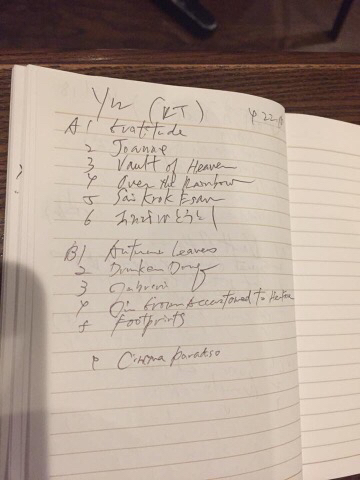 Yu (KT) 4.22.
A1 Gratitude
2 Joanne
3 Vault of Heaven
4 Over the Rainbow
5 Sai Krok Esan
6
B1 Autumn Leaves
2 Drunken Dog
3
4 I'm Grown Accustomed to Her Face
5 Footprints
e Cinema paradiso